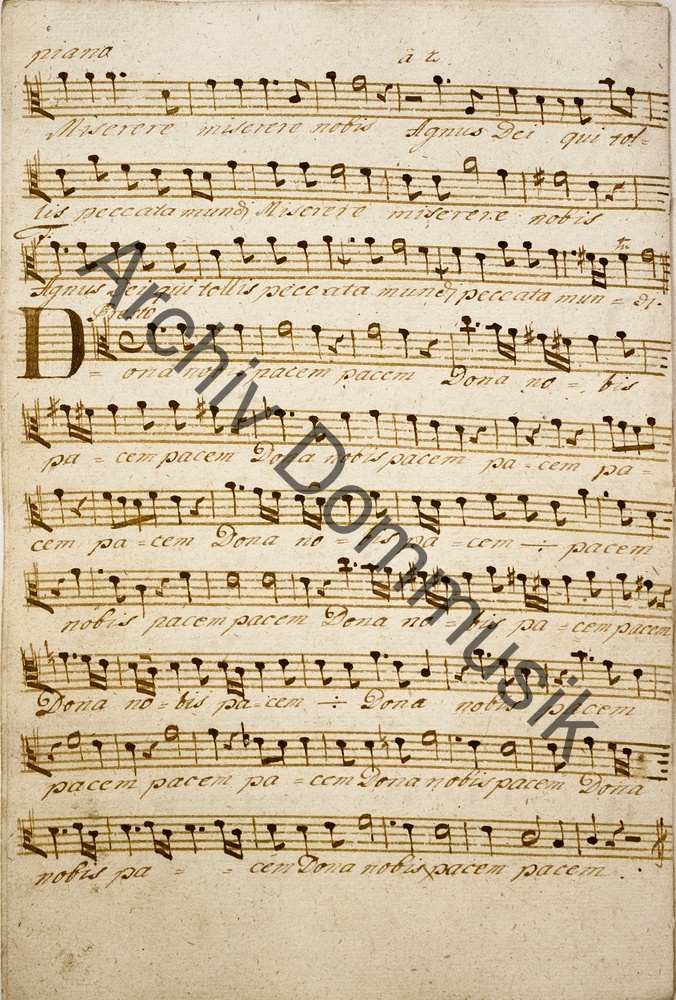 piano
Miserere miserere nobis Agnus Dei qui tol=
lis peccata mundi Miserere miserere nobis
Agnus Dei qui tollis peccata mundi peccata mun = di.
Presto
D = ona nobis pacem pacem Dona no = bis
pa = cem pacem Dona nobis pacem pa = cem pa =
cem pa = cem Dona no = bis pa = cem ÷ pacem
nobis pacem pacem Dona no = bis pa = cem pacem
Dona no = bis pa = cem ÷ Dona nobis pacem
pacem pacem pa = cem Dona nobis pacem Dona
nobis pa = = cem Dona nobis pacem pacem.
Archiv Dommusik